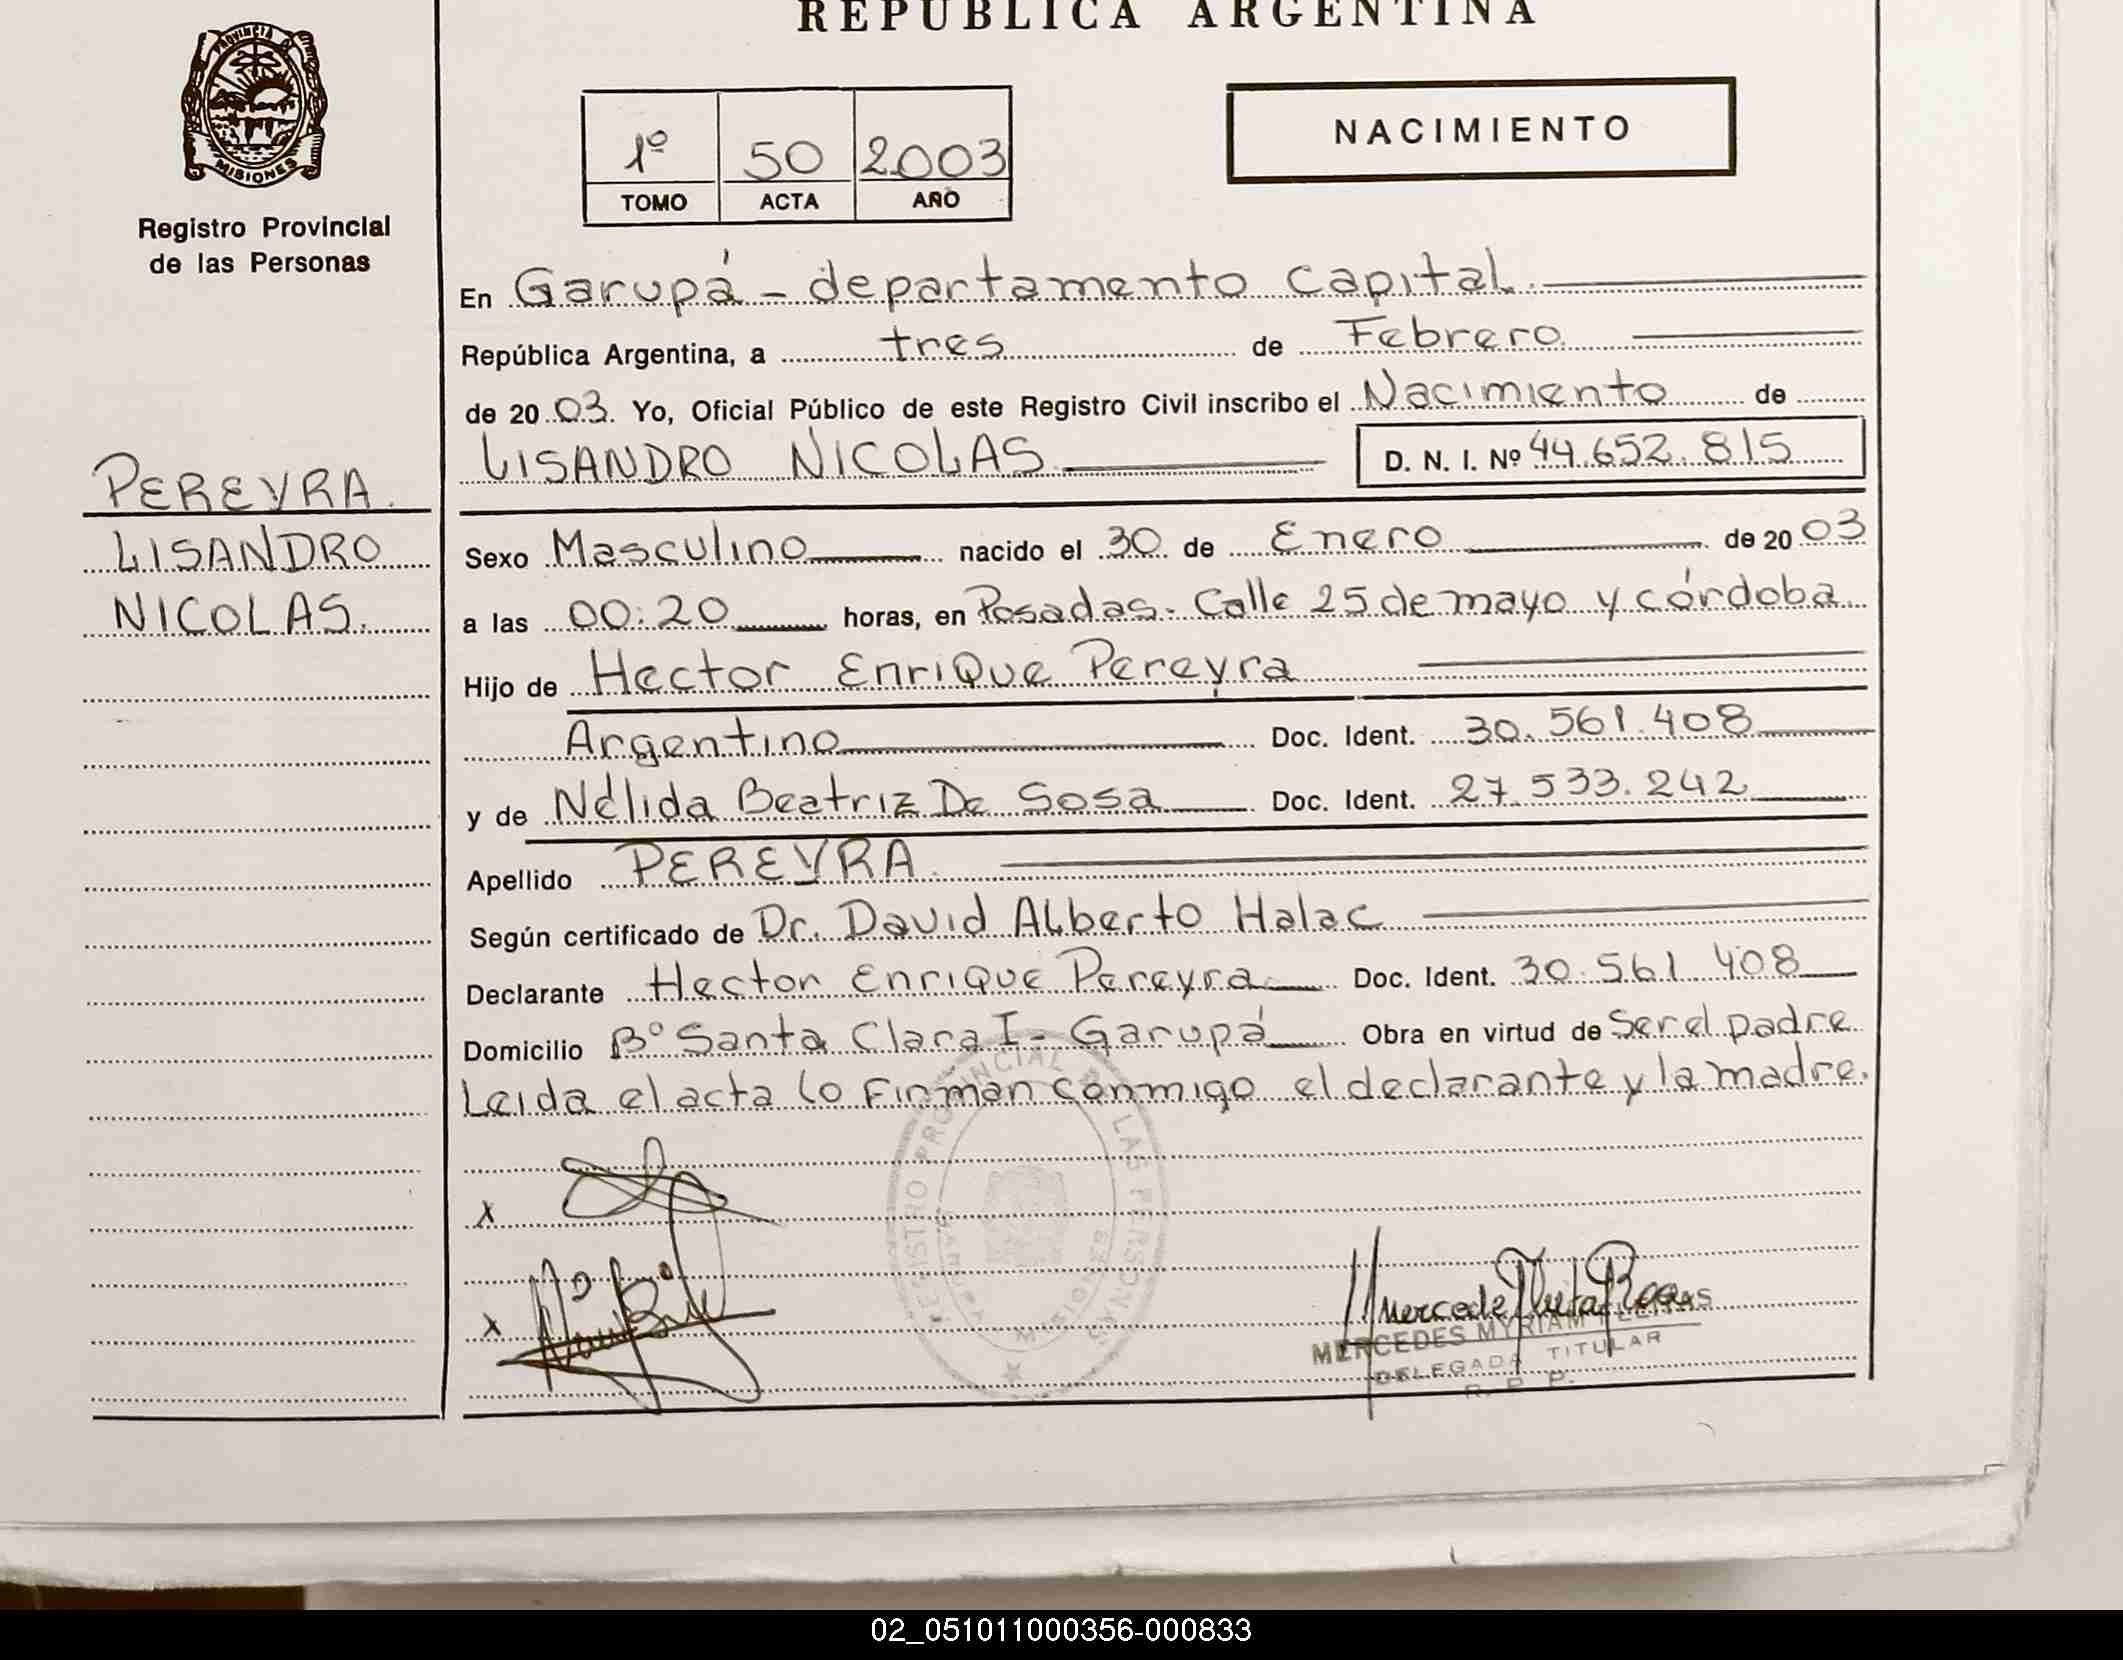 REPUBLICA ARGENTINA
PROVINCIA D
MISIONES
Registro Provincial
de las Personas
1º 50 2003
TOMO ACTA AÑO
NACIMIENTO
En Garupá - departamento Capital.
República Argentina, a tres de Febrero
de 20 03. Yo, Oficial Público de este Registro Civil inscribo el Nacimiento de
LISANDRO NICOLAS D. N. I. Nº 44.652.815
PEREYRA.
LISANDRO
NICOLAS.
Sexo Masculino nacido el 30 de Enero de 20 03
a las 00:20 horas, en Posadas. Calle 25 de mayo y córdoba.
Hijo de Hector Enrique Pereyra
Argentino Doc. Ident. 30.561.408
y de Nélida Beatriz De Sosa Doc. Ident. 27.533.242
Apellido PEREYRA.
Según certificado de Dr. David Alberto Halac
Declarante Hector Enrique Pereyra Doc. Ident. 30.561.408
Domicilio Bº Santa Clara I - Garupá Obra en virtud de Ser el padre
Leida el acta lo Firman conmigo el declarante y la madre.
REGISTRO PROVINCIAL DE LAS PERSONAS
GARUPA
MISIONES
x
x
MERCEDES MYRIAM
DELEGADA TITULAR
R. P. P.
02_051011000356-000833